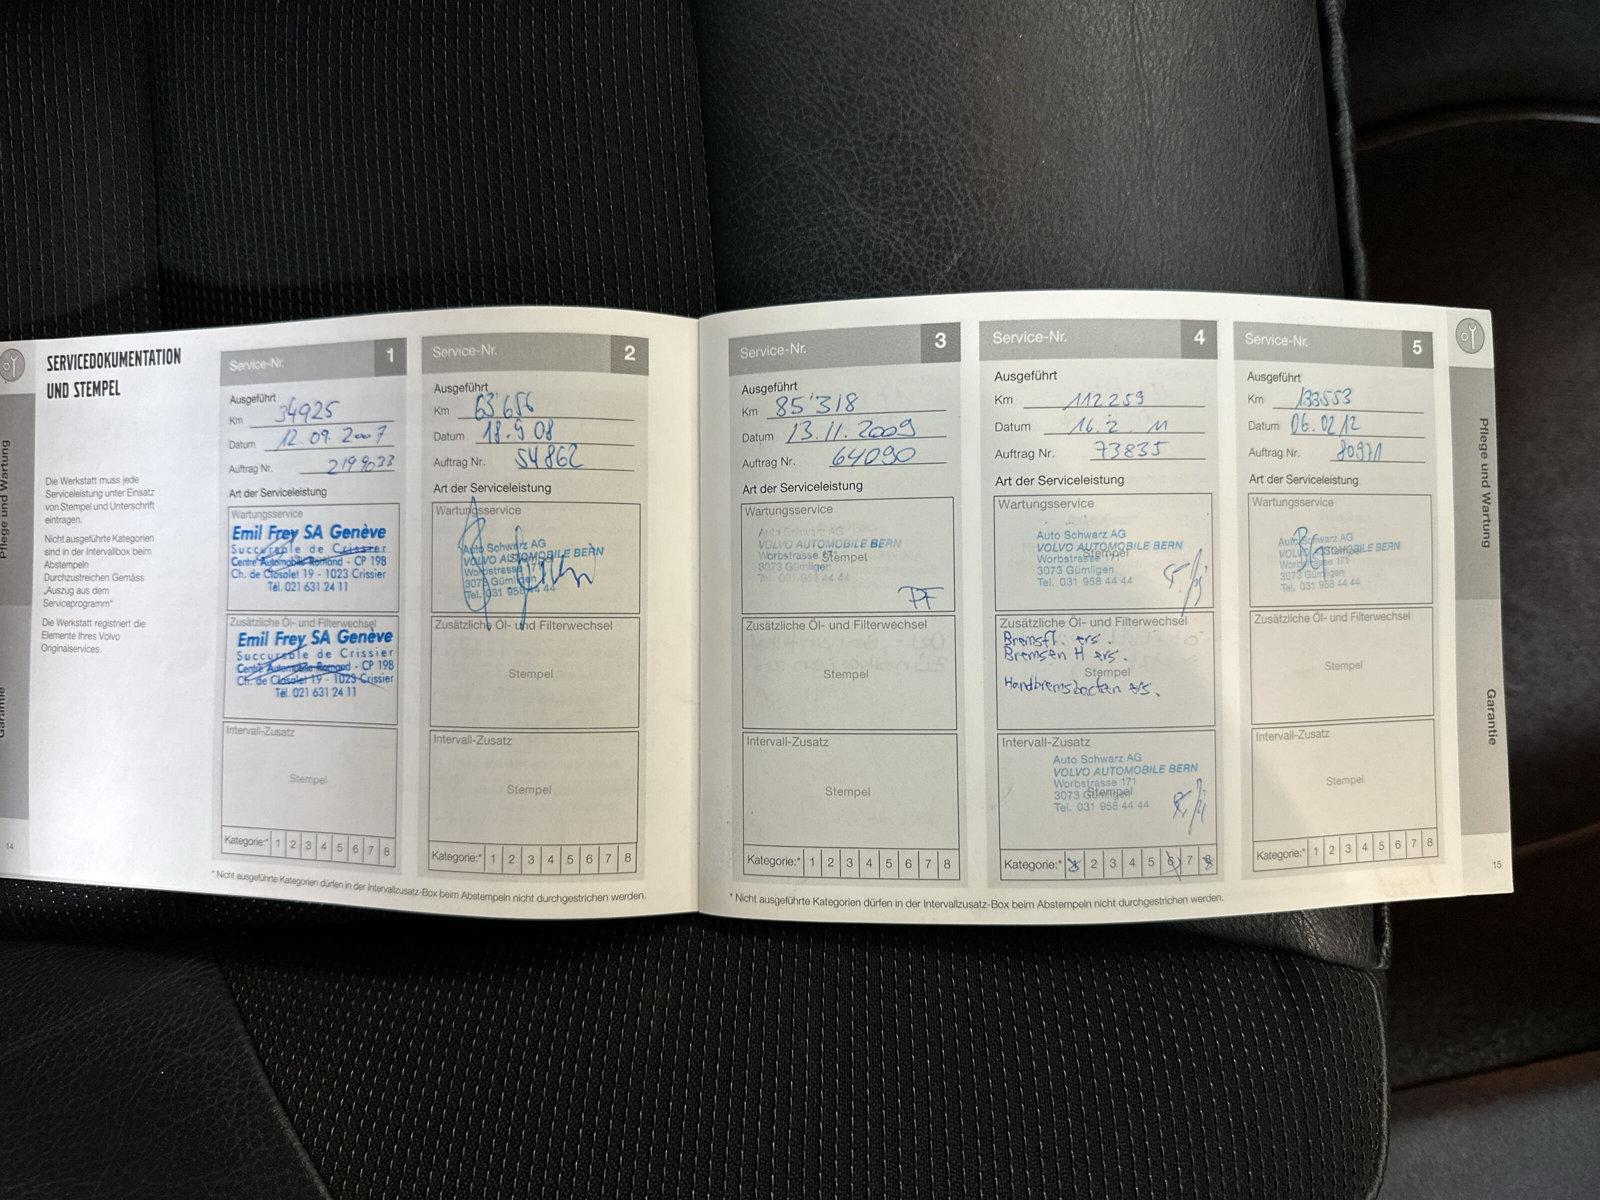 SERVICEDOKUMENTATION
UND STEMPEL
Die Werkstatt muss jede
Serviceleistung unter Einsatz
von Stempel und Unterschrift
eintragen.
Nicht ausgeführte Kategorien
sind in der Intervallbox beim
Abstempeln
Durchzustreichen Gemäss
„Auszug aus dem
Serviceprogramm"
Die Werkstatt registriert die
Elemente Ihres Volvo
Originalservices.
Pflege und Wartung
Garantie
14
Service-Nr. 1
Ausgeführt
Km 34925
Datum 12.09.2007
Auftrag Nr. 2199033
Art der Serviceleistung
Wartungsservice
Emil Frey SA Genève
Succursale de Crissier
Centre Automobile Romand - CP 198
Ch. de Closalet 19 - 1023 Crissier
Tél. 021 631 24 11
Zusätzliche Öl- und Filterwechsel
Emil Frey SA Genève
Succursale de Crissier
Centre Automobile Romand - CP 198
Ch. de Closalet 19 - 1023 Crissier
Tél. 021 631 24 11
Intervall-Zusatz
Stempel
Kategorie:* 1 2 3 4 5 6 7 8
Service-Nr. 2
Ausgeführt
Km 63'656
Datum 18.9 08
Auftrag Nr. 54862
Art der Serviceleistung
Wartungsservice
Auto Schwarz AG
VOLVO AUTOMOBILE BERN
Worbstrasse 171
3073 Gümligen
Tel. 031 958 44 44
Zusätzliche Öl- und Filterwechsel
Stempel
Intervall-Zusatz
Stempel
Kategorie:* 1 2 3 4 5 6 7 8
* Nicht ausgeführte Kategorien dürfen in der Intervallzusatz-Box beim Abstempeln nicht durchgestrichen werden.
Service-Nr. 3
Ausgeführt
Km 85'318
Datum 13.11.2009
Auftrag Nr. 64090
Art der Serviceleistung
Wartungsservice
Auto Schwarz AG
VOLVO AUTOMOBILE BERN
Worbstrasse 171 Stempel
3073 Gümligen
Tel. 031 958 44 44
PF
Zusätzliche Öl- und Filterwechsel
Stempel
Intervall-Zusatz
Stempel
Kategorie:* 1 2 3 4 5 6 7 8
Service-Nr. 4
Ausgeführt
Km 112259
Datum 16.2.11
Auftrag Nr. 73835
Art der Serviceleistung
Wartungsservice
Auto Schwarz AG
VOLVO AUTOMOBILE BERN
Stempel
Worbstrasse 171
3073 Gümligen
Tel. 031 958 44 44
Zusätzliche Öl- und Filterwechsel
Bremsfl. ers.
Bremsen H ers.
Stempel
Handbremsbacken ers.
Intervall-Zusatz
Auto Schwarz AG
VOLVO AUTOMOBILE BERN
Worbstrasse 171
3073 Gümligen Stempel
Tel. 031 958 44 44
Kategorie:* 1 2 3 4 5 6 7 8
Service-Nr. 5
Ausgeführt
Km 133553
Datum 06.02.12
Auftrag Nr. 80971
Art der Serviceleistung
Wartungsservice
Auto Schwarz AG
VOLVO AUTOMOBILE BERN
Stempel
Worbstrasse 171
3073 Gümligen
Tel. 031 958 44 44
Zusätzliche Öl- und Filterwechsel
Stempel
Intervall-Zusatz
Stempel
Kategorie:* 1 2 3 4 5 6 7 8
* Nicht ausgeführte Kategorien dürfen in der Intervallzusatz-Box beim Abstempeln nicht durchgestrichen werden.
Pflege und Wartung
Garantie
15